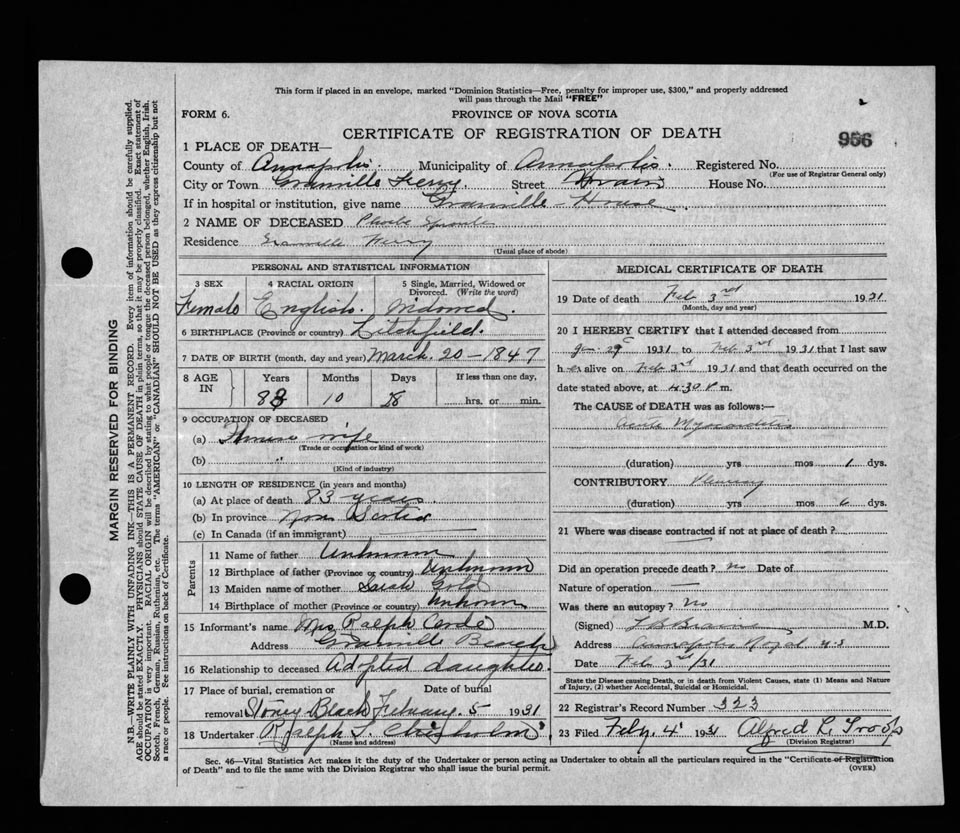 This form if placed in an envelope, marked "Dominion Statistics—Free, penalty for improper use, $300," and properly addressed
will pass through the Mail "FREE"
FORM 6.
PROVINCE OF NOVA SCOTIA
CERTIFICATE OF REGISTRATION OF DEATH
956
1 PLACE OF DEATH—
County of Annapolis. Municipality of Annapolis. Registered No.
(For use of Registrar General only)
City or Town Granville Ferry. Street House No.
If in hospital or institution, give name Granville House
2 NAME OF DECEASED Phoebe Sproule
Residence Granville Ferry
(Usual place of abode)
PERSONAL AND STATISTICAL INFORMATION
3 SEX 4 RACIAL ORIGIN 5 Single, Married, Widowed or
Divorced. (Write the word)
Female English. Widowed.
6 BIRTHPLACE (Province or country) Litchfield.
7 DATE OF BIRTH (month, day and year) March. 20 - 1847
8 AGE IN Years Months Days If less than one day,
83 10 hrs. or min.
9 OCCUPATION OF DECEASED
(a) House wife
(Trade or occupation or kind of work)
(b) "
(Kind of industry)
10 LENGTH OF RESIDENCE (in years and months)
(a) At place of death 83 years.
(b) In province Nova Scotia
(c) In Canada (if an immigrant)
Parents
11 Name of father Unknown
12 Birthplace of father (Province or country) Unknown
13 Maiden name of mother
14 Birthplace of mother (Province or country) Unknown
15 Informant's name Mrs Ralph
Address Granville Beach
16 Relationship to deceased Adopted daughter.
17 Place of burial, cremation or Date of burial
removal Stoney Beach February. 5 1931
18 Undertaker Ralph S. Chisholm
(Name and address)
MEDICAL CERTIFICATE OF DEATH
19 Date of death Feb 3rd 1931
(Month, day and year)
20 I HEREBY CERTIFY that I attended deceased from
Jan 29 1931 to Feb 3rd 1931 that I last saw
her alive on Feb 3rd 1931 and that death occurred on the
date stated above, at 4.30 P. m.
The CAUSE of DEATH was as follows:
Acute Myocarditis
(duration) yrs mos 1 dys.
CONTRIBUTORY Pleurisy
(duration) yrs mos 6 dys.
21 Where was disease contracted if not at place of death?
Did an operation precede death? no Date of
Nature of operation
Was there an autopsy? No
(Signed) M.D.
Address Annapolis Royal N.S
Date Feb 3rd/31
State the Disease causing Death, or in death from Violent Causes, state (1) Means and Nature
of Injury, (2) whether Accidental, Suicidal or Homicidal.
22 Registrar's Record Number 323
23 Filed Feby. 4 1931 Alfred L. Troop
(Division Registrar)
Sec. 46—Vital Statistics Act makes it the duty of the Undertaker or person acting as Undertaker to obtain all the particulars required in the "Certificate of Registration
of Death" and to file the same with the Division Registrar who shall issue the burial permit.
(OVER)
MARGIN RESERVED FOR BINDING
N.B.—WRITE PLAINLY WITH UNFADING INK—THIS IS A PERMANENT RECORD. Every item of information should be carefully supplied.
AGE should be stated EXACTLY. PHYSICIANS should STATE CAUSE OF DEATH in plain terms, so that it may be properly classified. Exact statement of
OCCUPATION is very important. RACIAL ORIGIN will be described by stating to what people or tongue the deceased person belonged, whether English, Irish,
Scotch, French, German, Russian, Ruthenian, etc. The terms "AMERICAN" or "CANADIAN" SHOULD NOT BE USED as they express citizenship but not
a race or people. See instructions on back of Certificate.